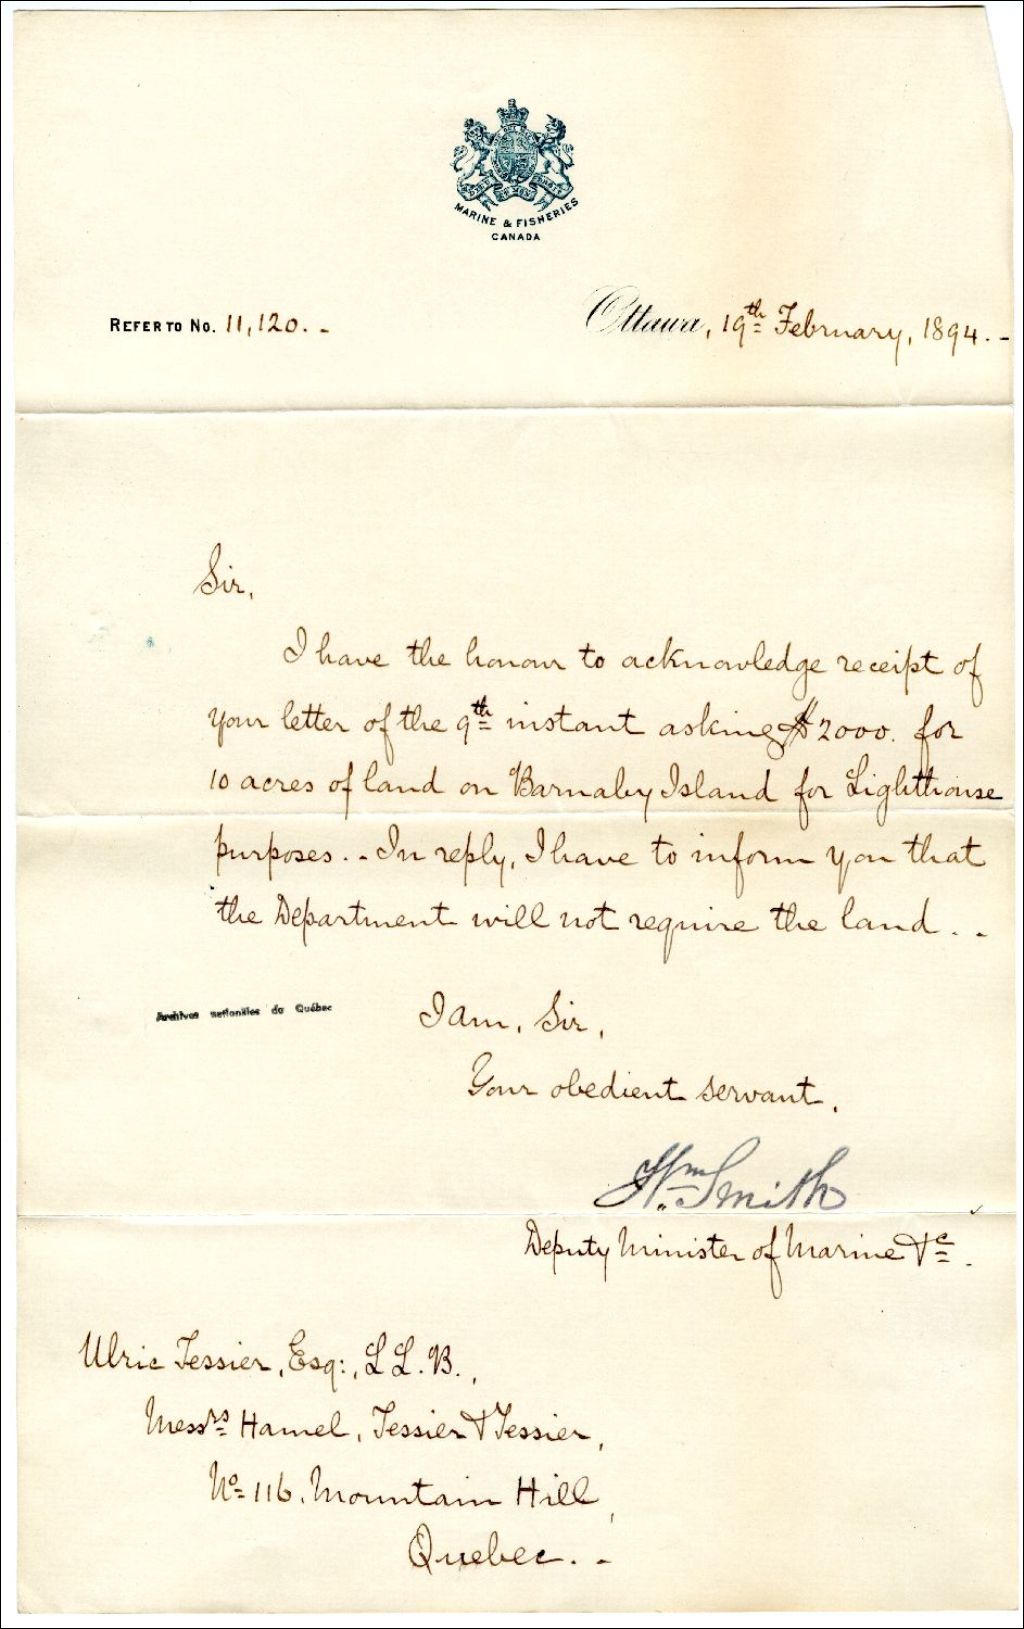 MARINE & FISHERIES
CANADA
REFER TO No. 11,120. -
Ottawa, 19th February, 1894. -
Sir,
I have the honour to acknowledge receipt of
your letter of the 9th instant asking $2000. for
10 acres of land on Barnaby Island for Lighthouse
purposes. - In reply, I have to inform you that
the Department will not require the land. -
Archives nationales du Québec
I am, Sir,
Your obedient servant,
Wm. Smith
Deputy Minister of Marine &c.
Ulric Tessier, Esq:, LL.B.,
Messrs Hamel, Tessier & Tessier,
No 116, Mountain Hill,
Quebec. -